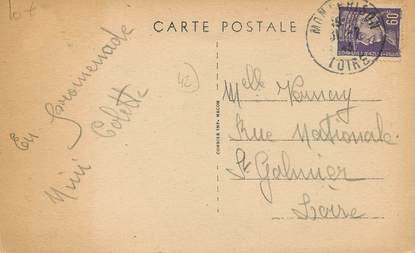 CARTE POSTALE
10 €
42
60c
LOIRE
En promenade
Mimi Colette
COMBIER IMP. MACON
Melle
Rue Nationale
St Galmier
Loire